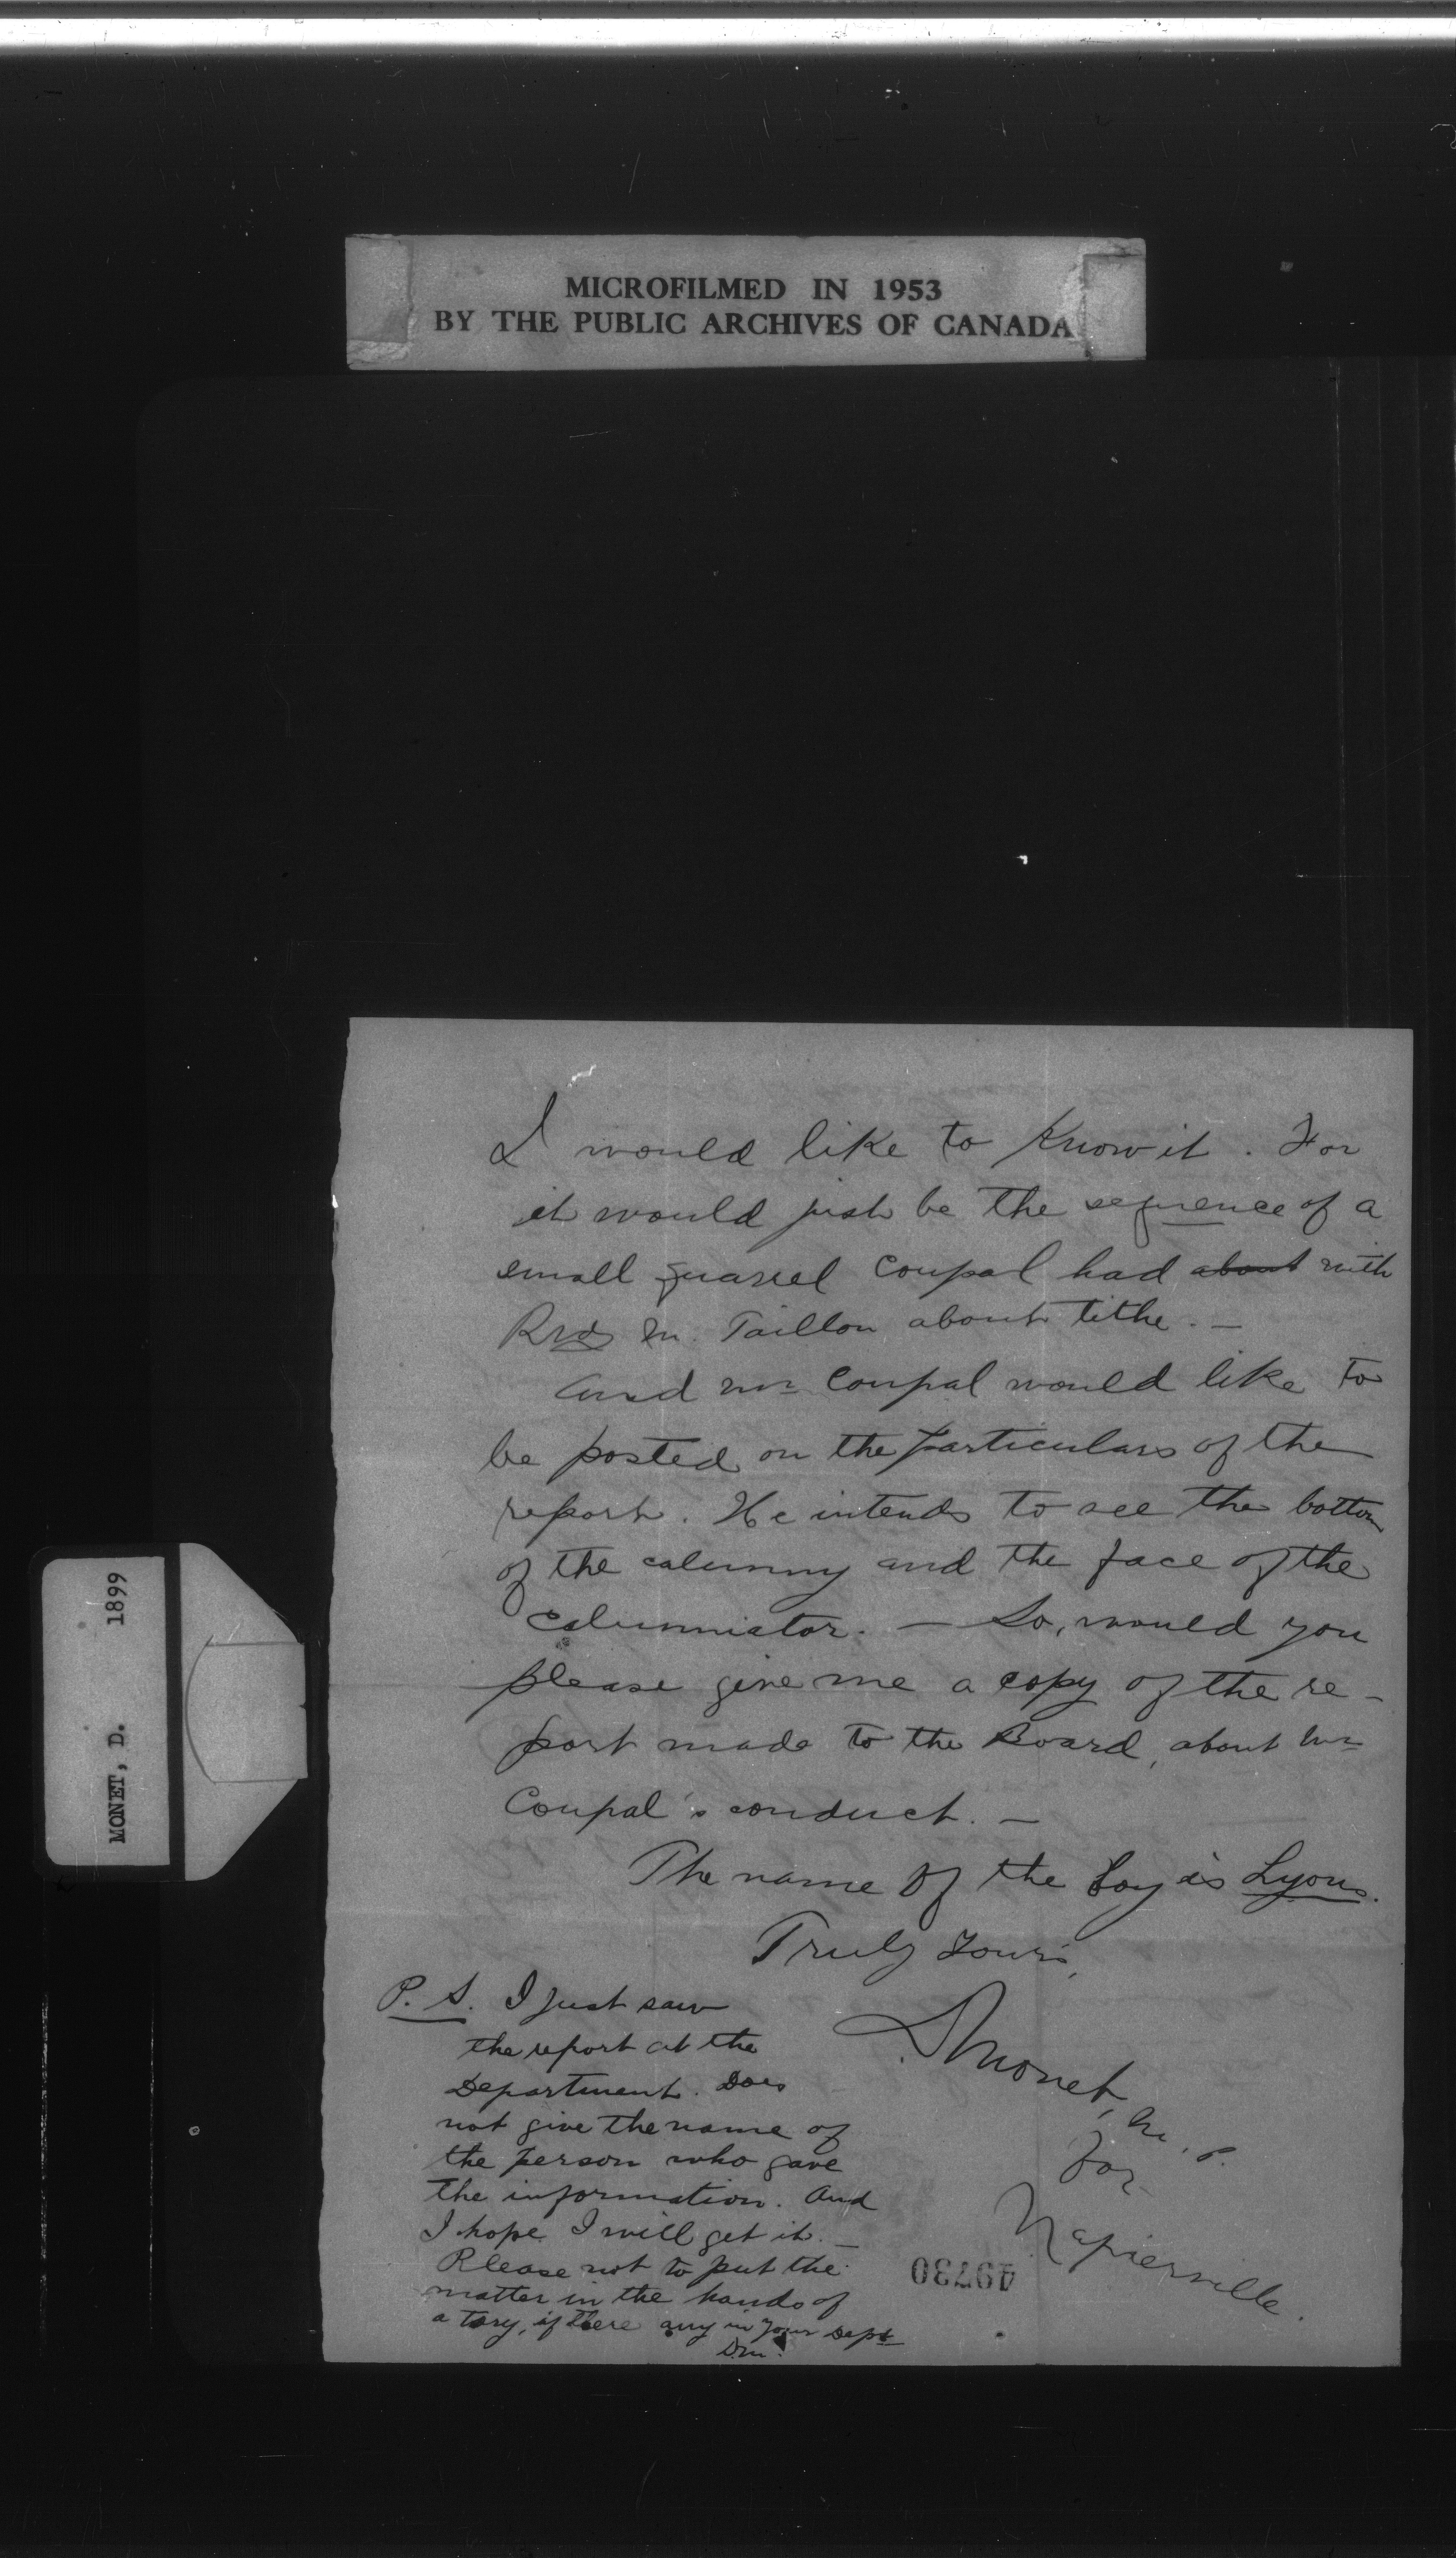 MICROFILMED IN 1953
BY THE PUBLIC ARCHIVES OF CANADA
MONET, D. 1899
I would like to know it. For
it would just be the sequence of a
small quarrel Coupal had about with
Rvd M. Taillon about tithe. —
And Mr Coupal would like to
be posted on the particulars of the
report. He intends to see the bottom
of the calumny and the face of the
calumniator. — So, would you
please give me a copy of the re-
port made to the Board, about Mr
Coupal's conduct. —
The name of the boy is Lyons.
Truly Yours,
DMonet, M.P.
for
Napierville.
P. S. I just saw
the report at the
Department. Does
not give the name of
the person who gave
the information. And
I hope I will get it. —
Please not to put the
matter in the hands of
a tory, if there any in your Dept
D.M.
49730